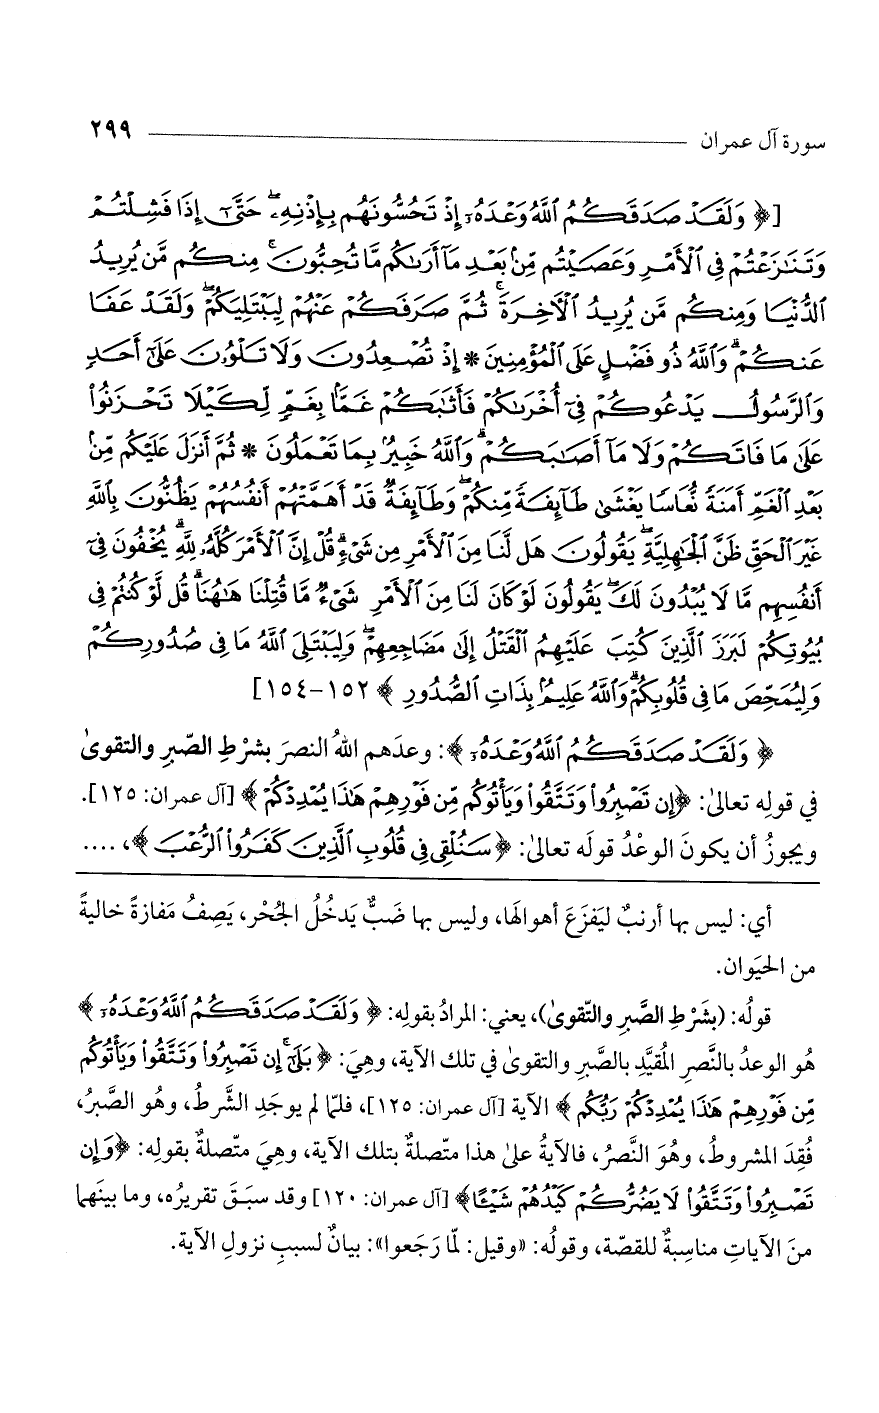 سورة آل عمران ٢٩٩
[﴿ وَلَقَدْ صَدَقَكُمُ ٱللَّهُ وَعْدَهُۥٓ إِذْ تَحُسُّونَهُم بِإِذْنِهِۦ ۖ حَتَّىٰٓ إِذَا فَشِلْتُمْ
وَتَنَٰزَعْتُمْ فِي ٱلْأَمْرِ وَعَصَيْتُم مِّنۢ بَعْدِ مَآ أَرَىٰكُم مَّا تُحِبُّونَ ۚ مِنكُم مَّن يُرِيدُ
ٱلدُّنْيَا وَمِنكُم مَّن يُرِيدُ ٱلْأَخِرَةَ ۚ ثُمَّ صَرَفَكُمْ عَنْهُمْ لِيَبْتَلِيَكُمْ ۖ وَلَقَدْ عَفَا
عَنكُمْ ۗ وَٱللَّهُ ذُو فَضْلٍ عَلَى ٱلْمُؤْمِنِينَ * إِذْ تُصْعِدُونَ وَلَا تَلْوُۥنَ عَلَىٰٓ أَحَدٍ
وَٱلرَّسُولُ يَدْعُوكُمْ فِيٓ أُخْرَىٰكُمْ فَأَثَٰبَكُمْ غَمًّۢا بِغَمٍّ لِّكَيْلَا تَحْزَنُوا۟
عَلَىٰ مَا فَاتَكُمْ وَلَا مَآ أَصَٰبَكُمْ ۗ وَٱللَّهُ خَبِيرٌۢ بِمَا تَعْمَلُونَ * ثُمَّ أَنزَلَ عَلَيْكُم مِّنۢ
بَعْدِ ٱلْغَمِّ أَمَنَةً نُّعَاسًا يَغْشَىٰ طَآئِفَةً مِّنكُمْ ۖ وَطَآئِفَةٌ قَدْ أَهَمَّتْهُمْ أَنفُسُهُمْ يَظُنُّونَ بِٱللَّهِ
غَيْرَ ٱلْحَقِّ ظَنَّ ٱلْجَٰهِلِيَّةِ ۖ يَقُولُونَ هَل لَّنَا مِنَ ٱلْأَمْرِ مِن شَيْءٍ ۗ قُلْ إِنَّ ٱلْأَمْرَ كُلَّهُۥ لِلَّهِ ۗ يُخْفُونَ فِيٓ
أَنفُسِهِم مَّا لَا يُبْدُونَ لَكَ ۖ يَقُولُونَ لَوْ كَانَ لَنَا مِنَ ٱلْأَمْرِ شَيْءٌ مَّا قُتِلْنَا هَٰهُنَا ۗ قُل لَّوْ كُنتُمْ فِي
بُيُوتِكُمْ لَبَرَزَ ٱلَّذِينَ كُتِبَ عَلَيْهِمُ ٱلْقَتْلُ إِلَىٰ مَضَاجِعِهِمْ ۖ وَلِيَبْتَلِيَ ٱللَّهُ مَا فِي صُدُورِكُمْ
وَلِيُمَحِّصَ مَا فِي قُلُوبِكُمْ ۗ وَٱللَّهُ عَلِيمٌۢ بِذَاتِ ٱلصُّدُورِ ﴾ ١٥٢-١٥٤]
﴿ وَلَقَدْ صَدَقَكُمُ ٱللَّهُ وَعْدَهُۥٓ ﴾: وعدَهم اللهُ النصرَ بشرْطِ الصّبرِ والتقوىٰ
في قولِه تعالىٰ: ﴿إِن تَصْبِرُوا۟ وَتَتَّقُوا۟ وَيَأْتُوكُم مِّن فَوْرِهِمْ هَٰذَا يُمْدِدْكُمْ ﴾ [آل عمران: ١٢٥].
ويجوزُ أن يكونَ الوعْدُ قولَه تعالىٰ: ﴿سَنُلْقِي فِي قُلُوبِ ٱلَّذِينَ كَفَرُوا۟ ٱلرُّعْبَ ﴾، ....
أي: ليس بها أرنبٌ ليَفزَعَ أهوالَها، وليس بها ضَبٌّ يَدخُلُ الجُحْر، يَصِفُ مَفازةً خاليةً
من الحيَوان.
قولُه: (بشَرْطِ الصَّبرِ والتّقوىٰ)، يعني: المرادُ بقولِه: ﴿ وَلَقَدْ صَدَقَكُمُ ٱللَّهُ وَعْدَهُۥٓ ﴾
هُو الوعدُ بالنَّصرِ المُقيَّدِ بالصَّبرِ والتقوىٰ في تلك الآية، وهيَ: ﴿ بَلَىٰٓ ۚ إِن تَصْبِرُوا۟ وَتَتَّقُوا۟ وَيَأْتُوكُم
مِّن فَوْرِهِمْ هَٰذَا يُمْدِدْكُمْ رَبُّكُم ﴾ الآية [آل عمران: ١٢٥]، فلمّا لم يوجَدِ الشَّرطُ، وهو الصَّبرُ،
فُقِدَ المشروطُ، وهُوَ النَّصرُ، فالآيةُ علىٰ هذا متّصلةٌ بتلك الآية، وهيَ متّصلةٌ بقولِه: ﴿وَإِن
تَصْبِرُوا۟ وَتَتَّقُوا۟ لَا يَضُرُّكُمْ كَيْدُهُمْ شَيْـًٔا﴾ [آل عمران: ١٢٠] وقد سبَقَ تقريرُه، وما بينَهما
منَ الآياتِ مناسِبةٌ للقصّة، وقولُه: «وقيل: لمّا رَجَعوا»: بيانٌ لسببِ نزولِ الآية.